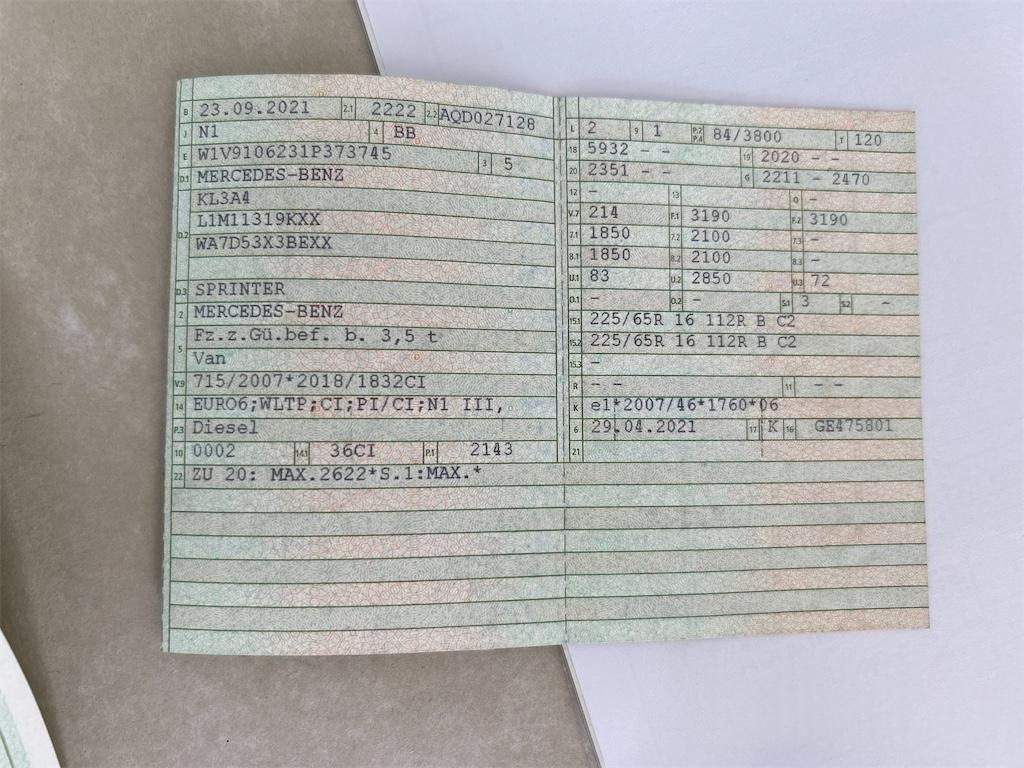 B 23.09.2021 2.1 2222 2.2 AQD027128
J N1 4 BB
E W1V9106231P373745 3 5
D.1 MERCEDES-BENZ
KL3A4
L1M11319KXX
D.2
WA7D53X3BEXX
D.3 SPRINTER
2 MERCEDES-BENZ
Fz.z.Gü.bef. b. 3,5 t
5
Van
V.9 715/2007*2018/1832CI
14 EURO6;WLTP;CI;PI/CI;N1 III,
P.3 Diesel
10 0002 14.1 36CI P.1 2143
22 ZU 20: MAX.2622*S.1:MAX.*
L 2 9 1 P.2 P.4 84/3800 T 120
18 5932 - - 19 2020 - -
20 2351 - - G 2211 - 2470
12 - 13 Q -
V.7 214 F.1 3190 F.2 3190
7.1 1850 7.2 2100 7.3 -
8.1 1850 8.2 2100 8.3 -
U.1 83 U.2 2850 U.3 72
O.1 - O.2 - S.1 3 S.2 -
15.1 225/65R 16 112R B C2
15.2 225/65R 16 112R B C2
15.3 -
R - - 11 - -
K e1*2007/46*1760*06
6 29.04.2021 17 K 16 GE475801
21